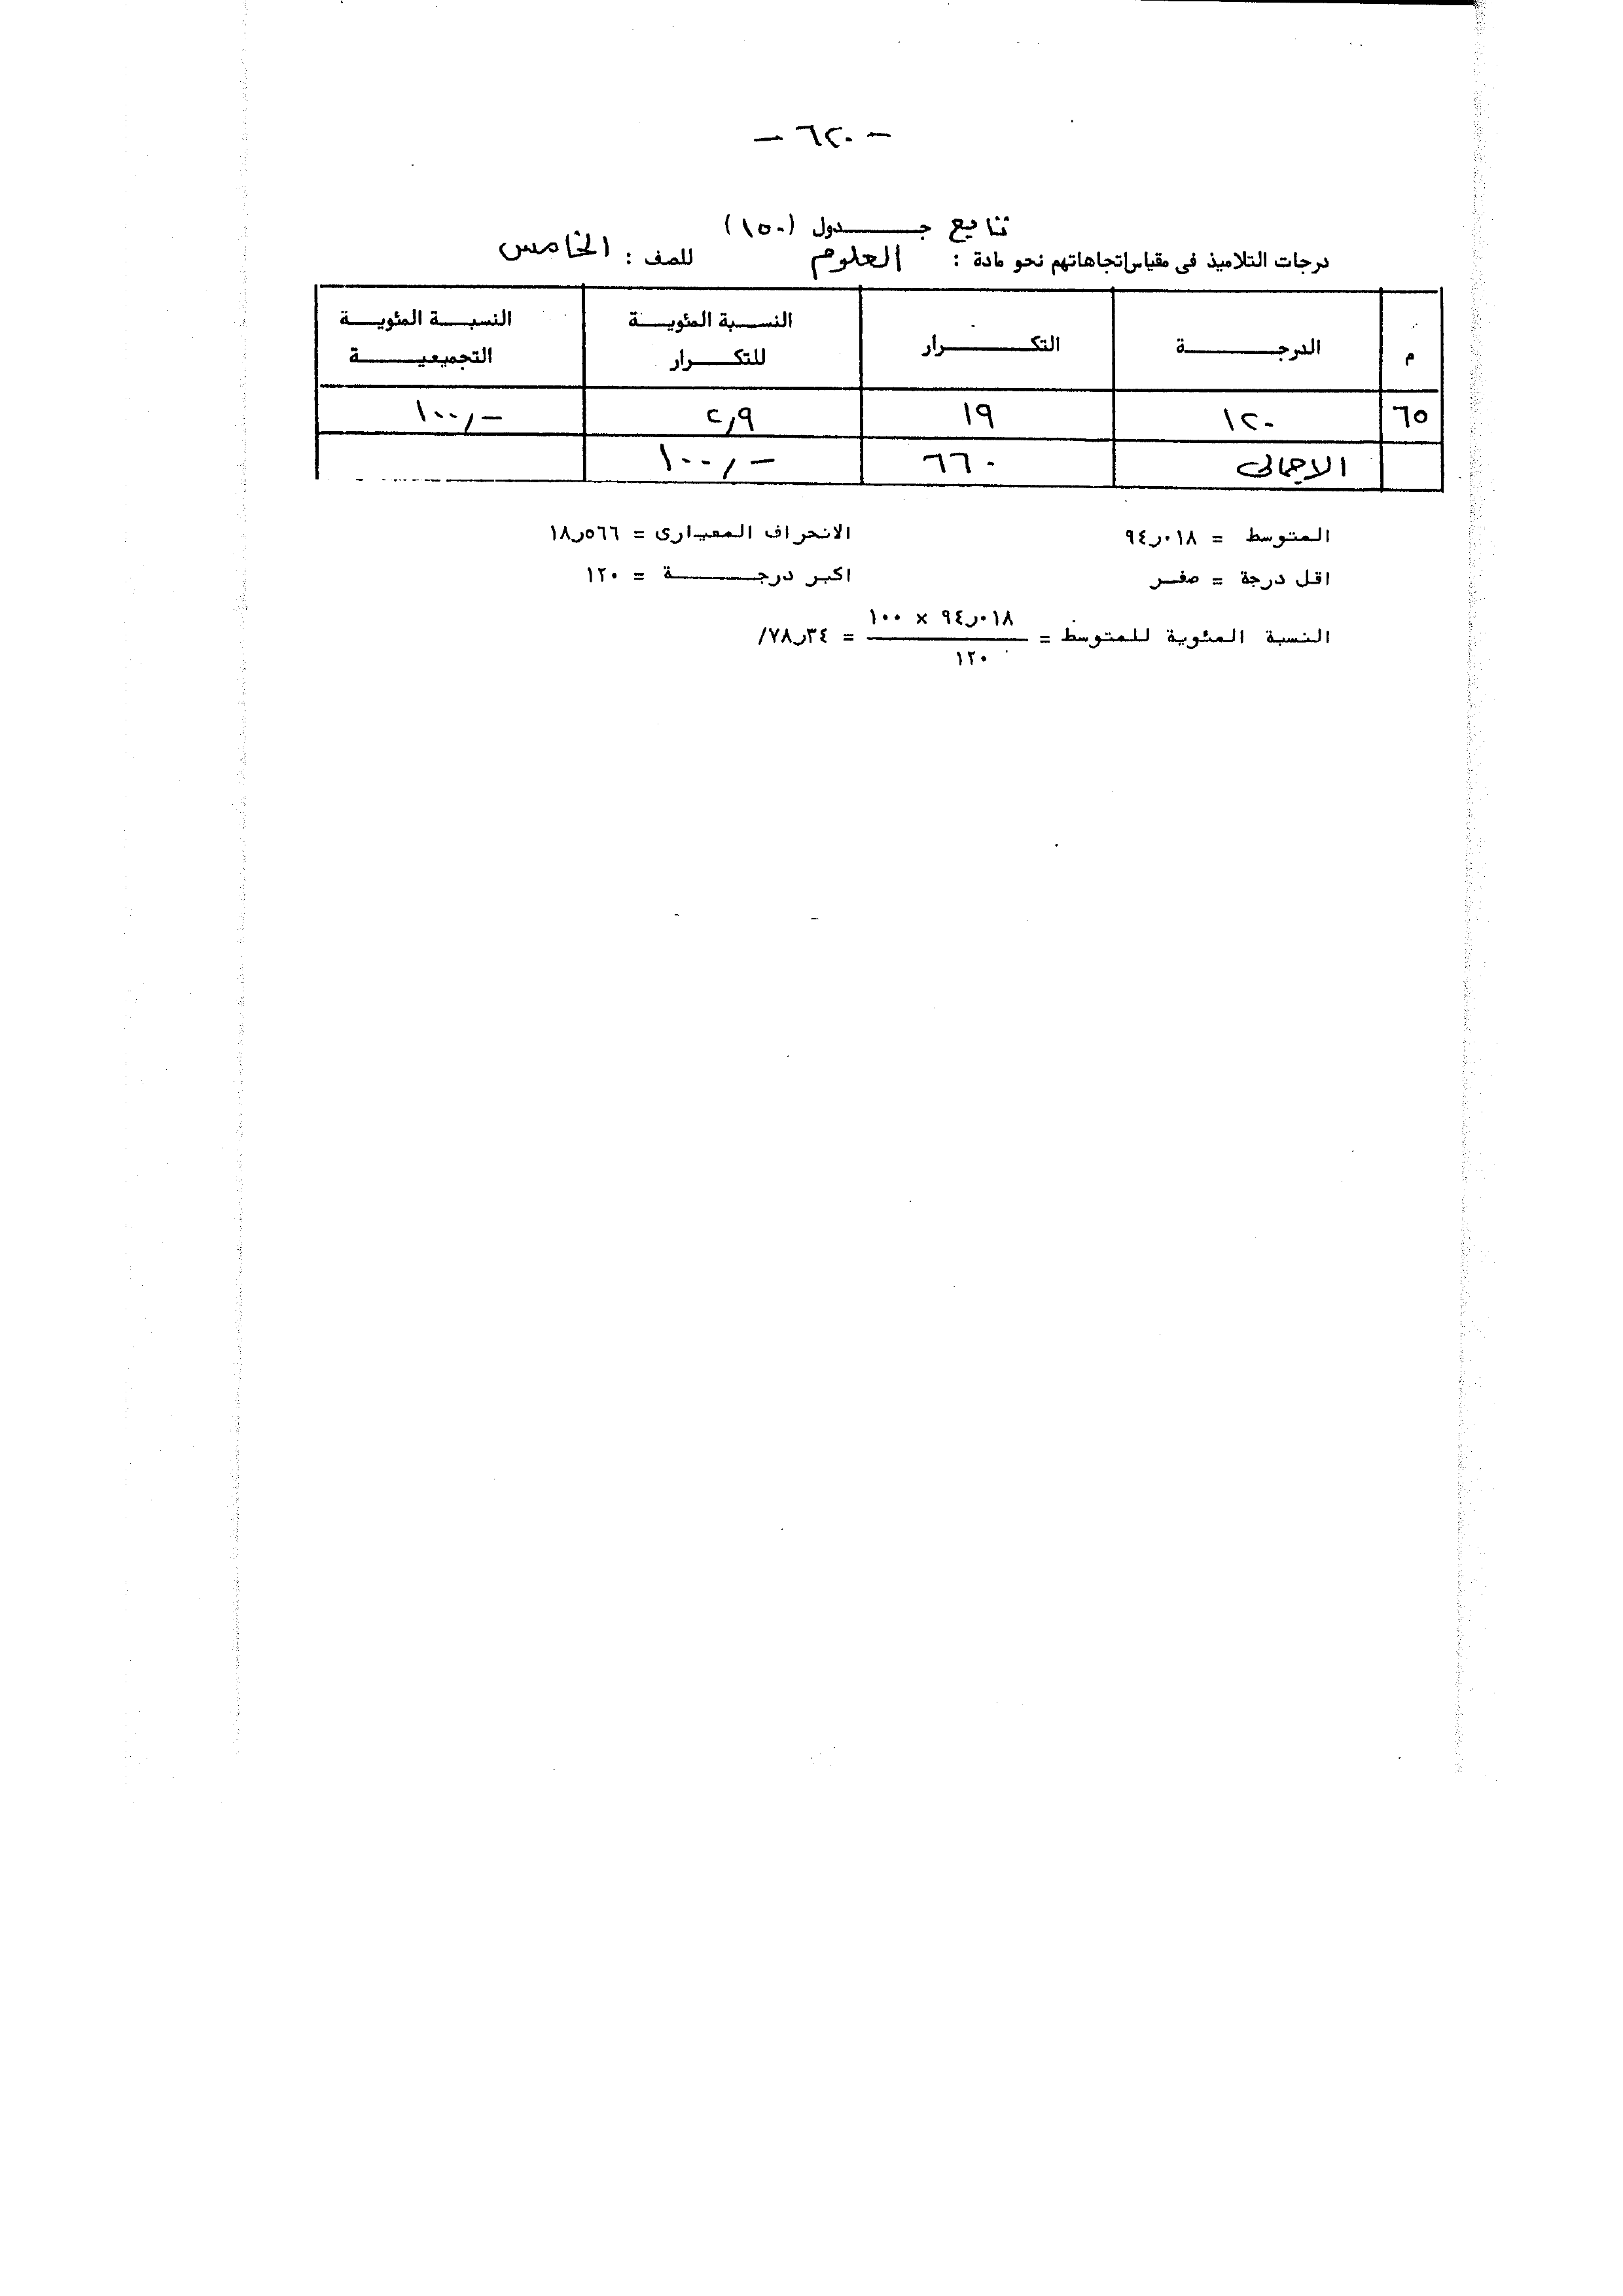 - ٦٢٠ -
تابع جـــدول (١٥٠)
درجات التلاميذ فى مقياس إتجاهاتهم نحو مادة : العلوم للصف : الخامس
م الدرجــــة التكـــرار النســبة المئويــة للتكـــرار النسبــة المئويــة التجميعيـــة
٦٥ ١٢٠ ١٩ ٢ر٩ ١٠٠ر-
الاجمالى ٦٦٠ ١٠٠ر-
المتوسط = ٠١٨ر٩٤ الانحراف المعيارى = ٥٦٦ر١٨
اقل درجة = صفر اكبر درجــــة = ١٢٠
النسبة المئوية للمتوسط = ٠١٨ر٩٤ × ١٠٠ = ٣٤ر٧٨٪
١٢٠